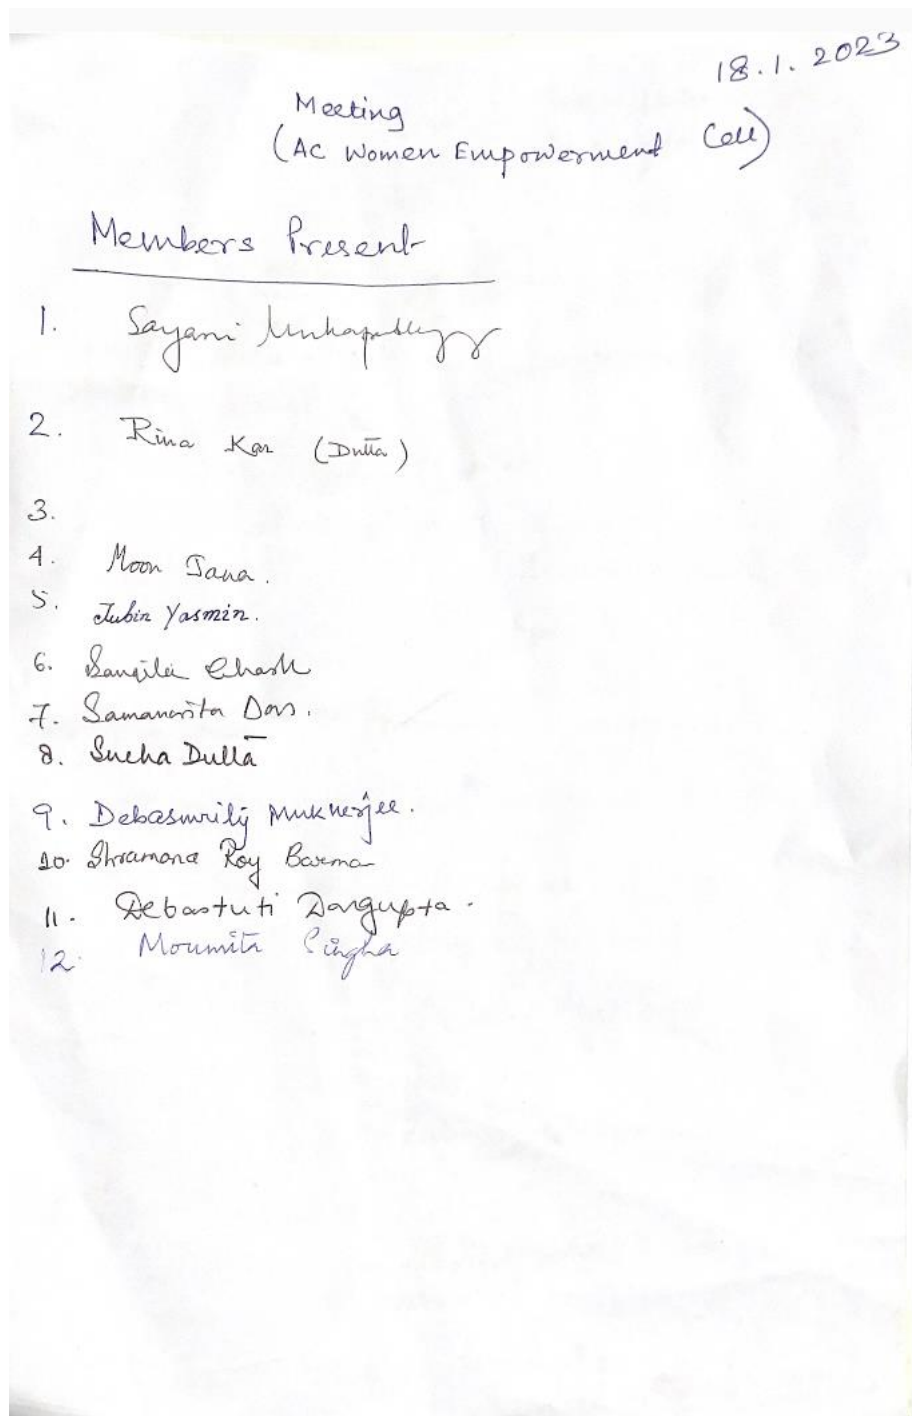 18.1.2023
Meeting
(AC Women Empowerment Cell)
Members Present
1. Sayani Mukhopadhyay
2. Rina Kar (Dutta)
3.
4. Moon Jana.
5. Jubin Yasmin.
6. Sangita Ghosh
7. Samanwita Das.
8. Sneha Dutta
9. Debasmrity Mukherjee.
10. Shramana Roy Barman
11. Debastuti Dasgupta.
12. Moumita Singha